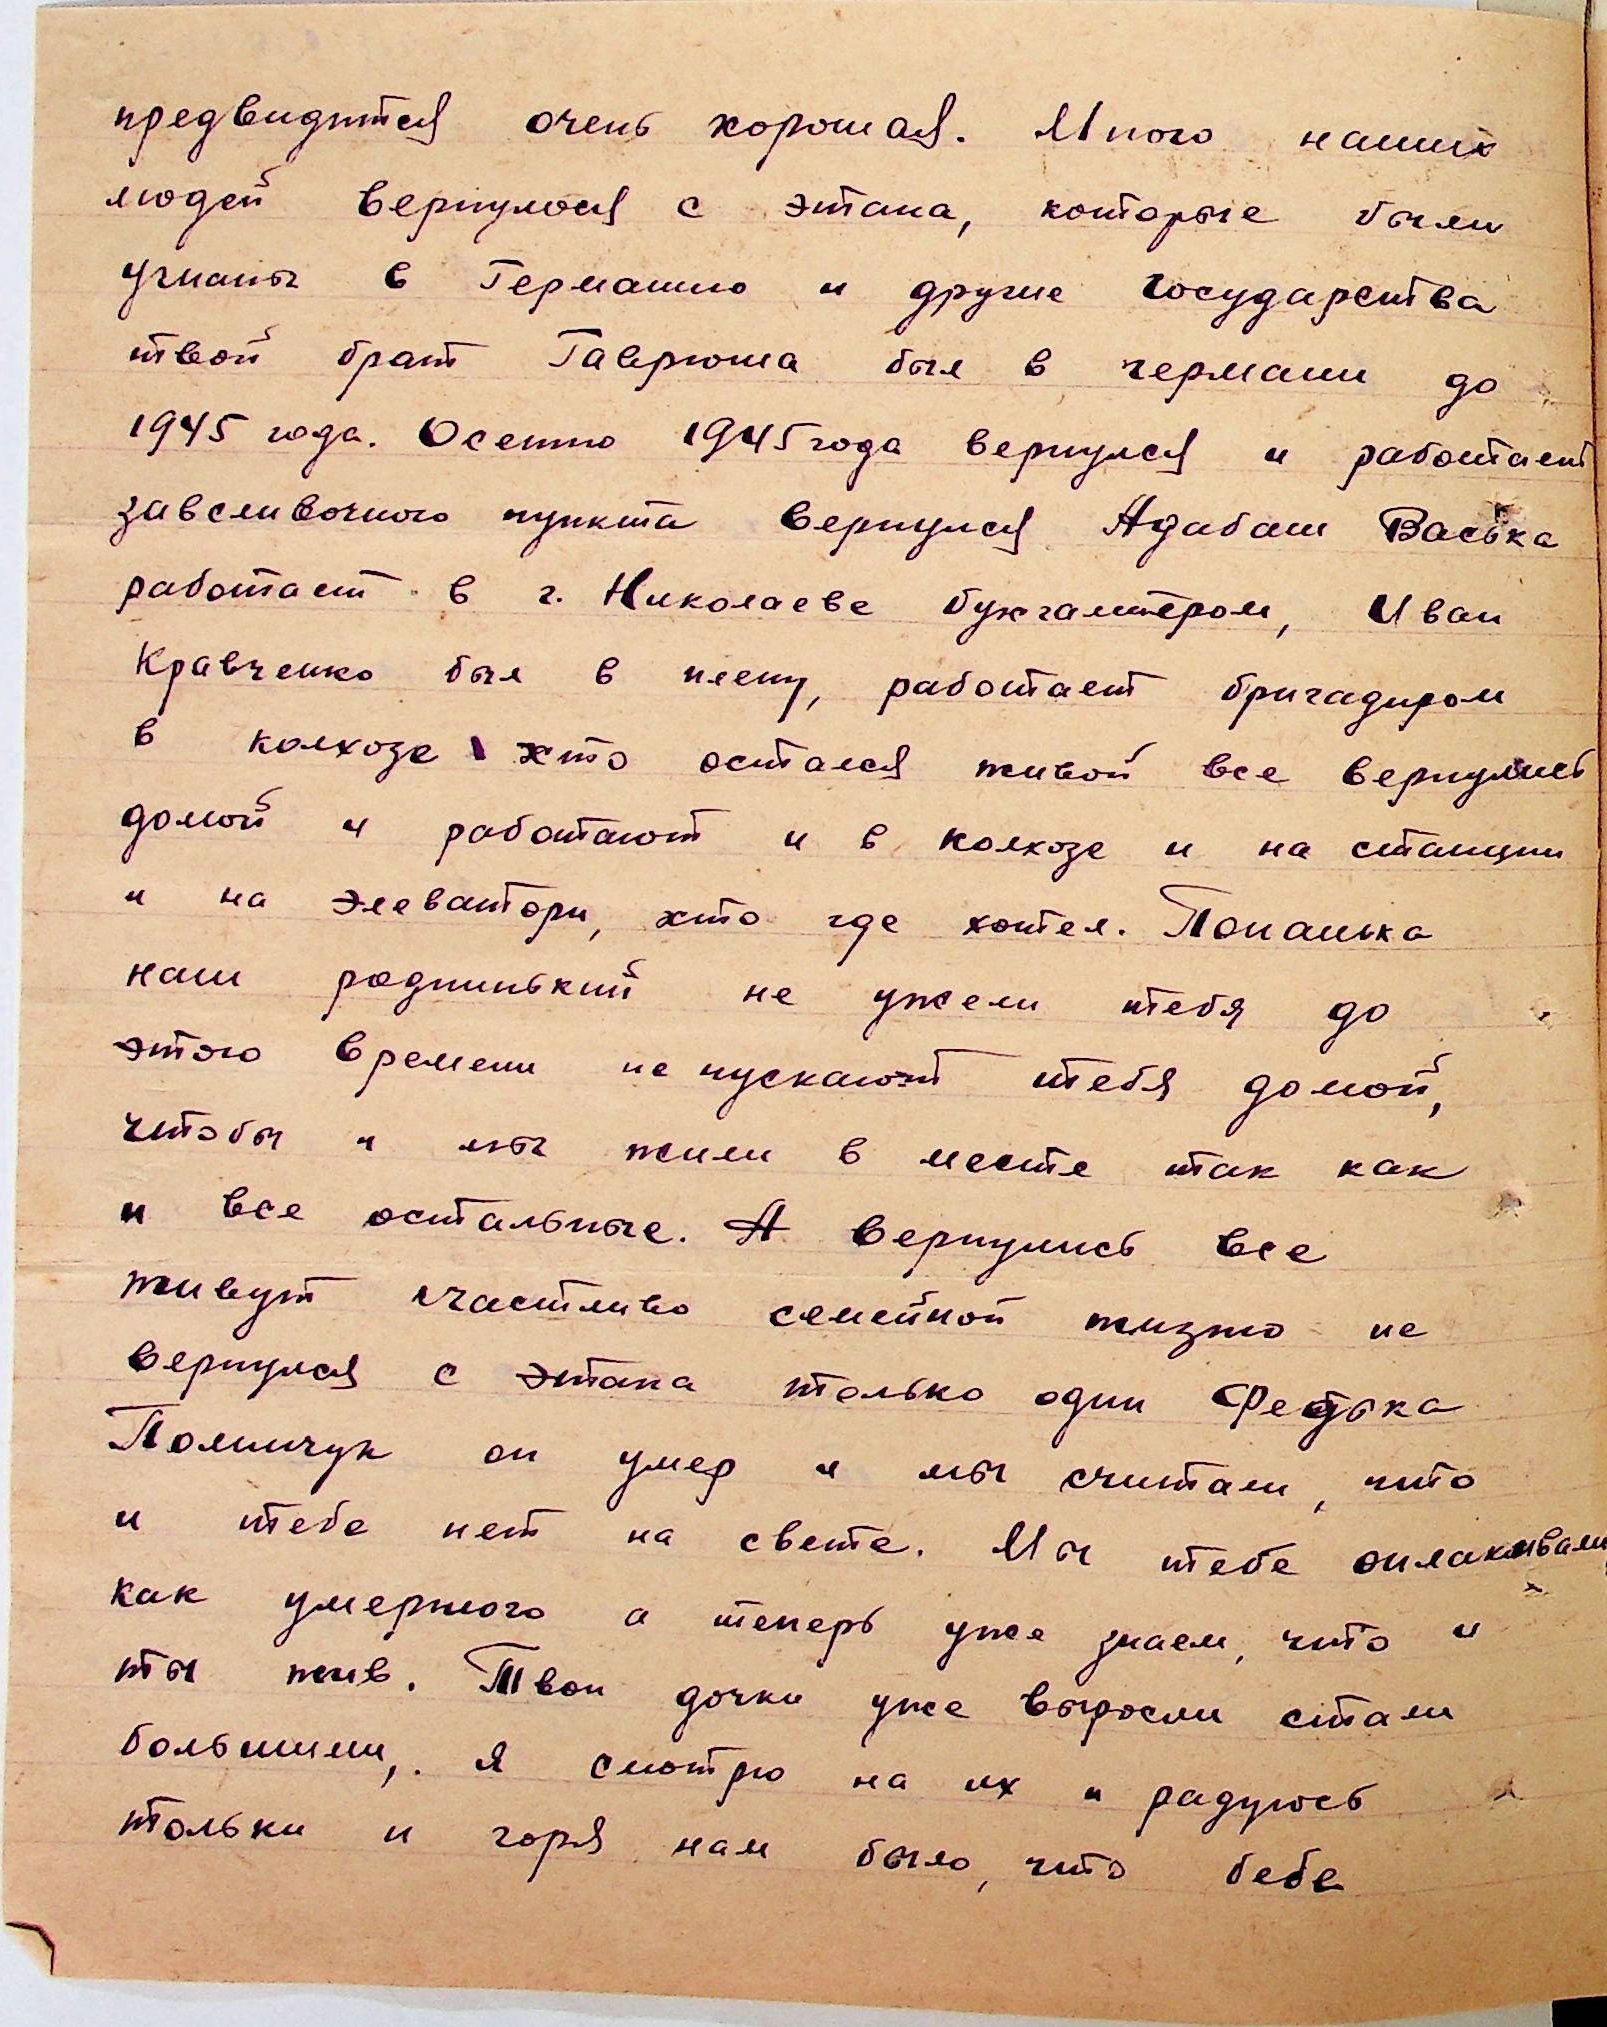 предвидится очень хорошая. Много наших
людей вернулося с этапа, которые были
угнаны в Германию и другие государства
твой брат Гаврюша был в германи до
1945 года. Осенню 1945 года вернулся и работает
завсливочного пункта вернулся Адабаш Васька
работает в г. Николаеве бухгалтером, Иван
Кравченко был в плену, работает бригадиром
в колхозе хто остался живой все вернулись
домой и работают и в колхозе и на станции
и на элеватори, хто где хотел. Папанька
наш роднинький не ужели тебя до
этого времени не пускают тебя домой,
чтобы и мы жили в месте так как
и все остальные. А вернулись все
живут счастливо семейной жизню не
вернулся с этапа только один Федька
Полищук он умер и мы считали, что
и тебе нет на свете. Мы тебе оплакивали,
как умерного а теперь уже знаем, что и
ты жив. Твои дочки уже выросли стали
большими,. я смотрю на их и радуюсь
тольки и горя нам было, что бебе